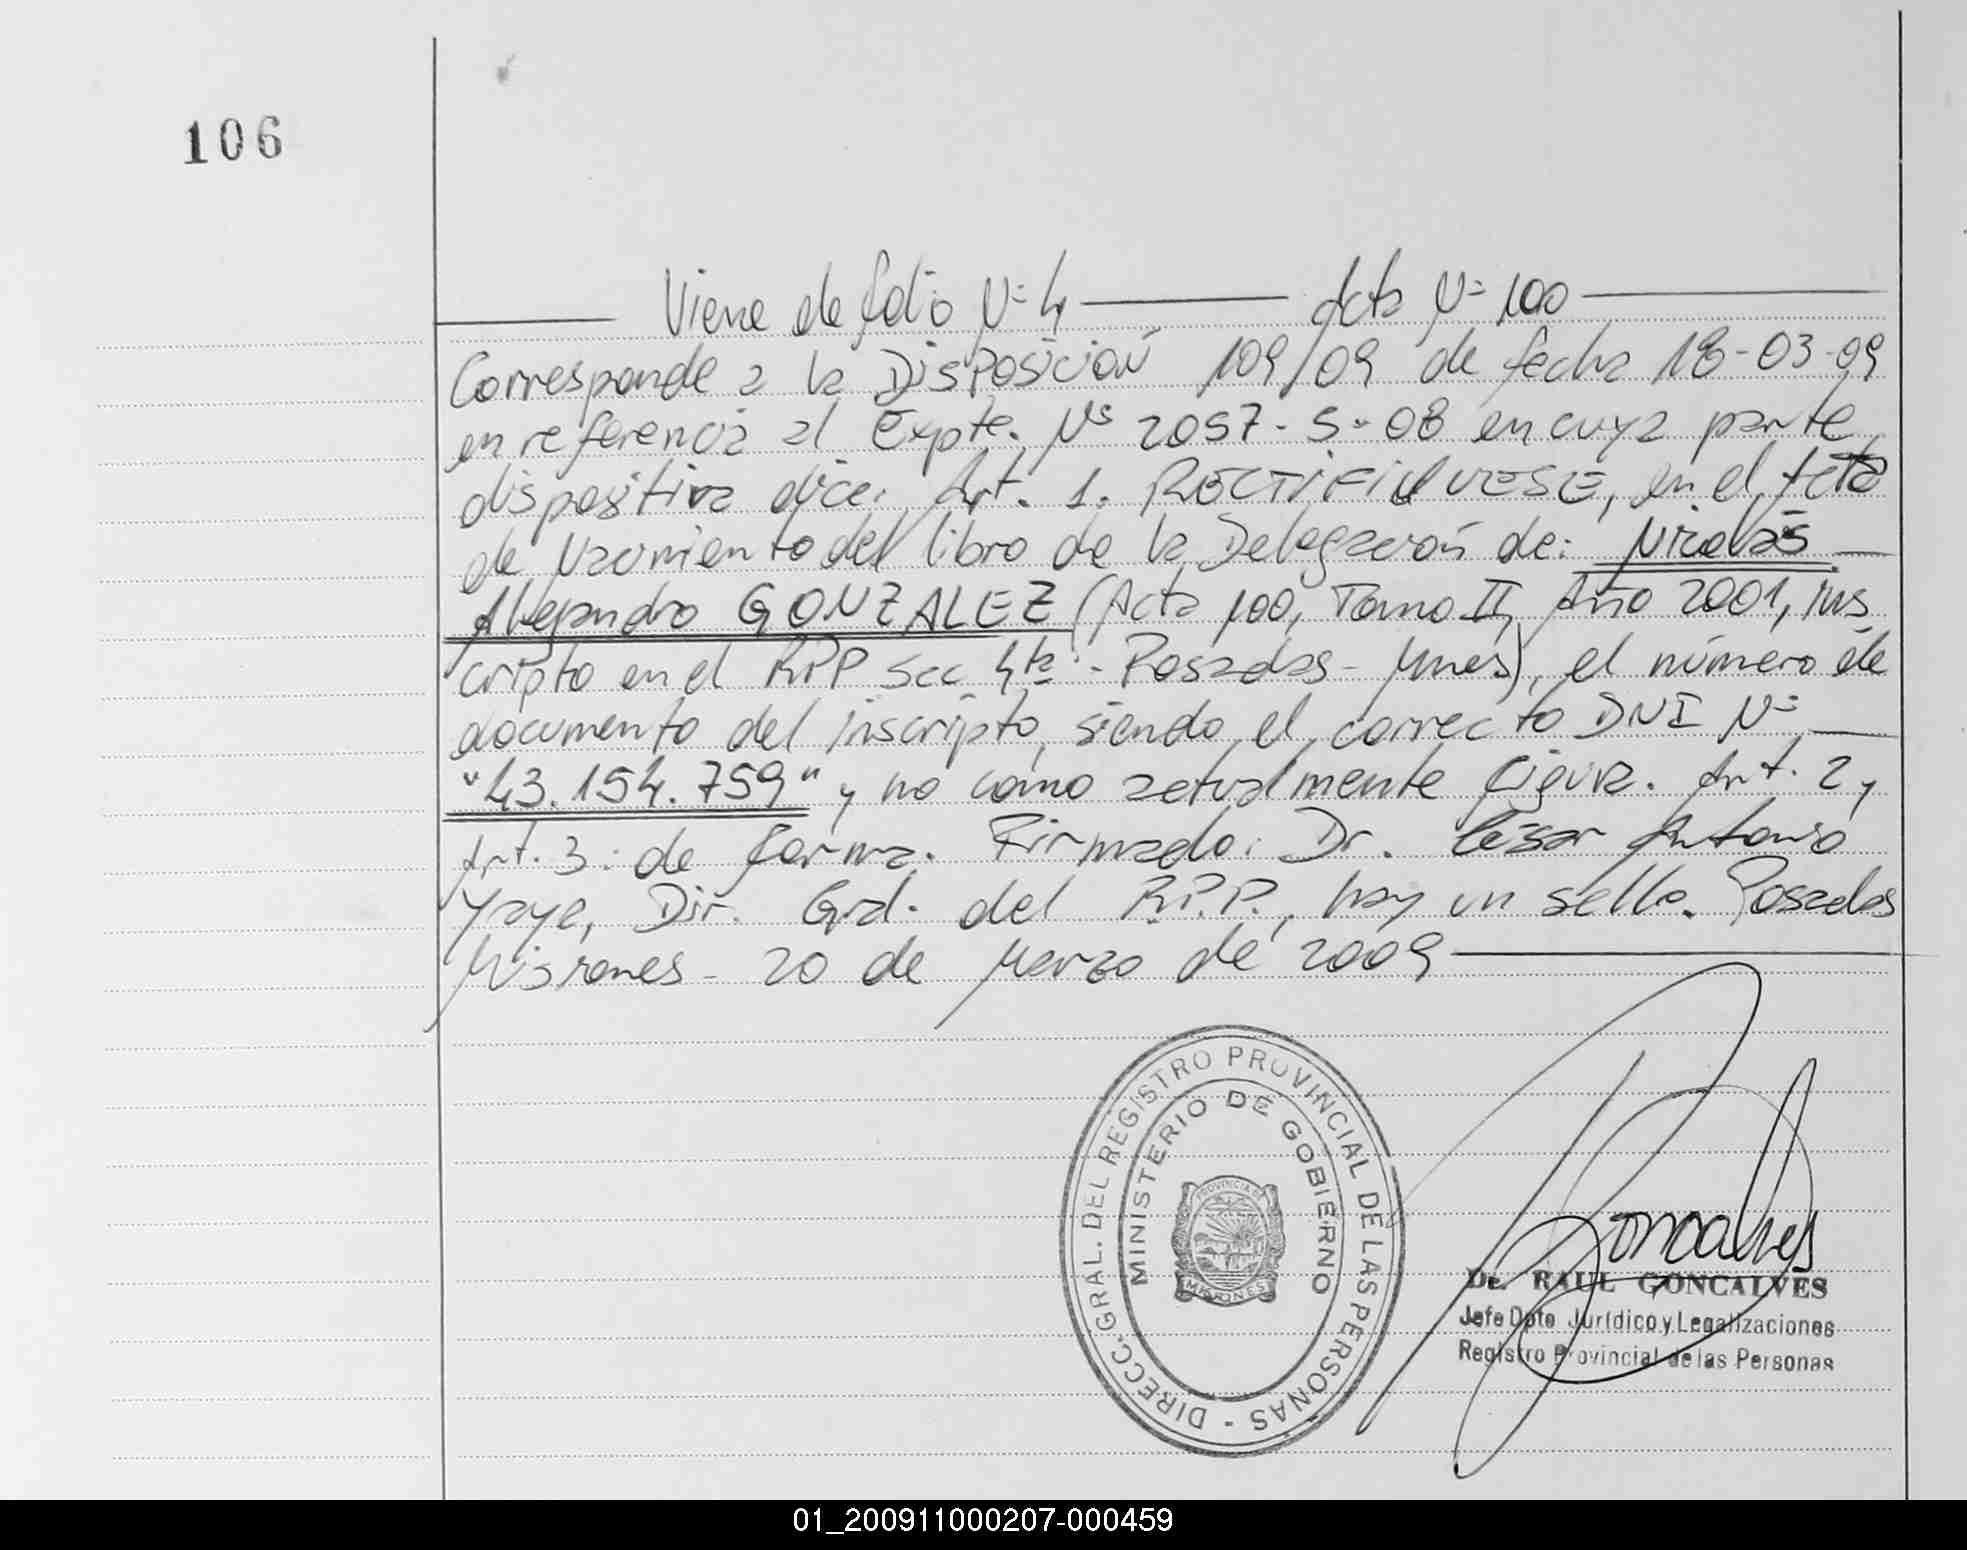 106
Viene de folio Nº 4 Acta Nº 100
Corresponde a la Disposición 109/09 de fecha 18-03-09
en referencia al Expte. Nº 2057-S-08 en cuya parte
dispositiva dice: Art. 1. RECTIFIQUESE, en el Acta
de Nacimiento del libro de la Delegación de: Nicolás
Alejandro GONZALEZ (Acta 100, Tomo II, Año 2001, ins
cripto en el RPP Sec 4ta - Posadas - Mnes), el número de
documento del inscripto, siendo el correcto DNI Nº
"43.154.759" y no como actualmente figura. Art. 2 y
Art. 3: de forma. Firmado: Dr. César Antonio
Yaya, Dir. Gral. del R.P.P., hay un sello. Posadas
Misiones - 20 de Marzo de 2009
DIRECC. GRAL. DEL REGISTRO PROVINCIAL DE LAS PERSONAS -
MINISTERIO DE GOBIERNO
PROVINCIA DE
MISIONES
Goncalves
Dr. RAUL GONCALVES
Jefe Dpto Jurídico y Legalizaciones
Registro Provincial de las Personas
01_200911000207-000459